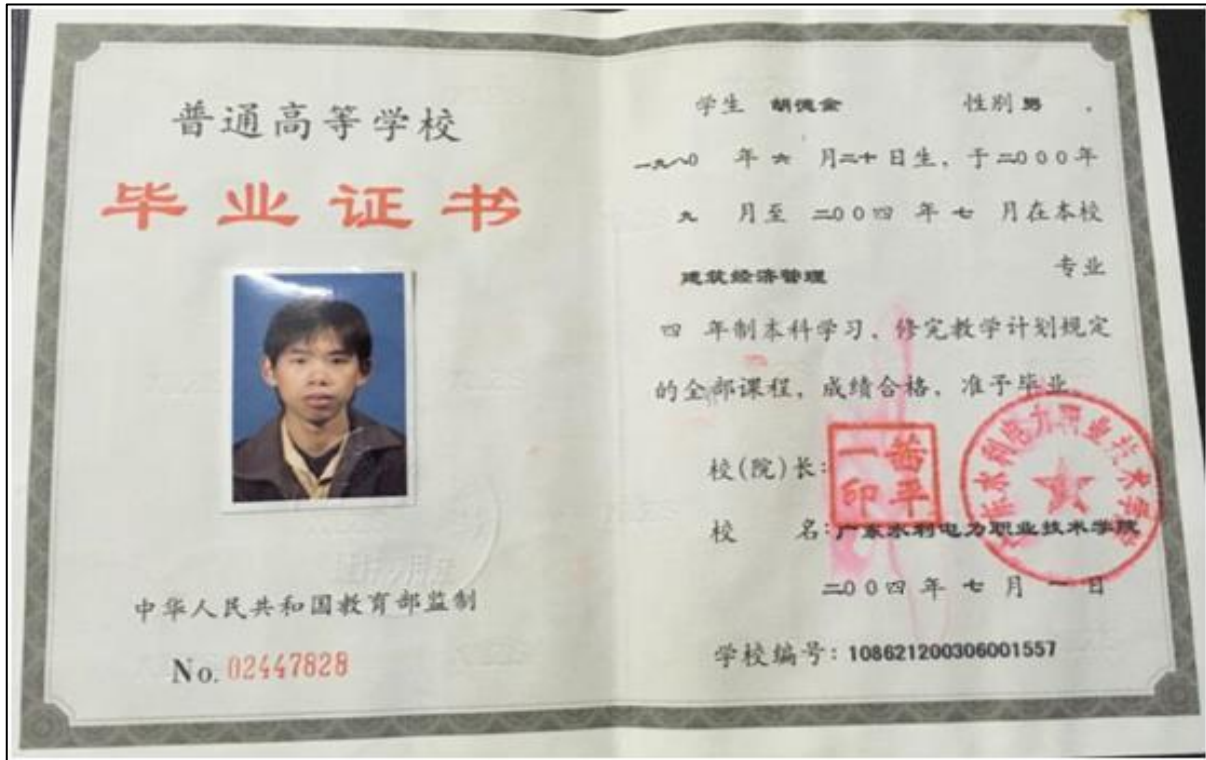 普通高等学校
毕业证书
中华人民共和国教育部监制
No. 02447828
学生 胡德金 性别 男 ,
一九八0 年 六 月二十 日生, 于二000年
九 月至 二00四 年 七 月在本校
建筑经济管理 专业
四 年制本科学习、修完教学计划规定
的全部课程, 成绩合格、准予毕业
校(院)长:
一茜
印平
校 名: 广东水利电力职业技术学院
二00四 年 七 月 一 日
学校编号: 108621200306001557
广东水利电力职业技术学院